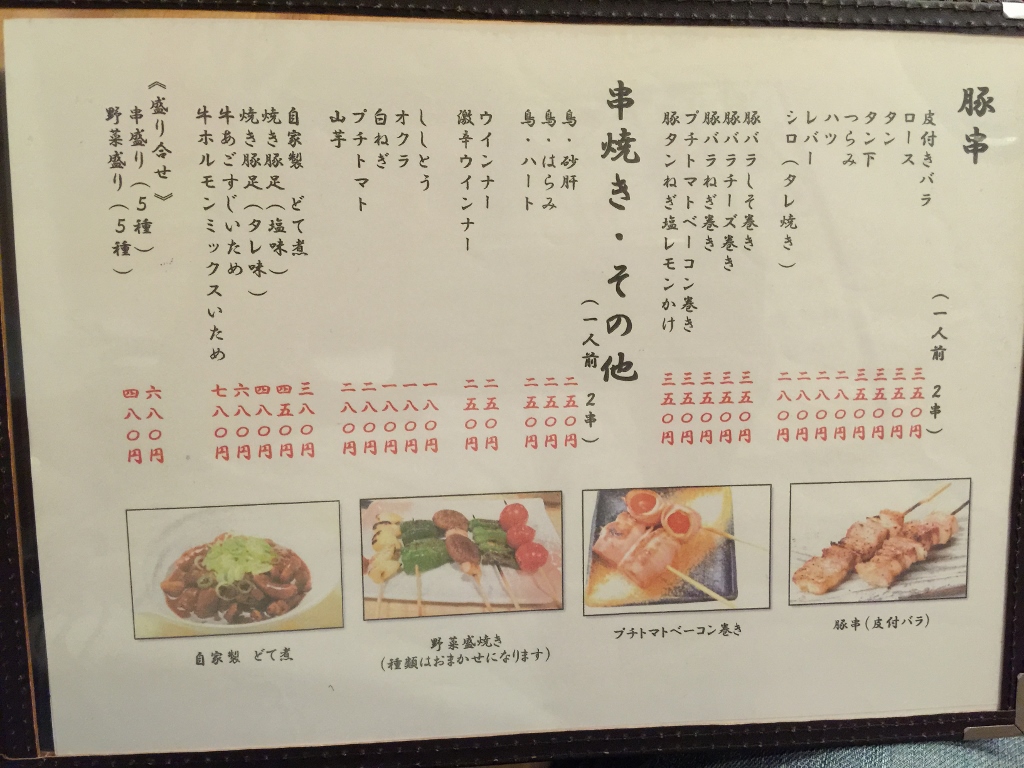 豚串
（一人前 2串）
皮付きバラ 三五〇円
ロース 三五〇円
タン 三五〇円
タン下 三五〇円
つらみ 二八〇円
ハツ 二八〇円
レバー 二八〇円
シロ（タレ焼き） 二八〇円
豚バラしそ巻き 三五〇円
豚バラチーズ巻き 三五〇円
豚バラねぎ巻き 三五〇円
プチトマトベーコン巻き 三五〇円
豚タンねぎ塩レモンかけ 三五〇円
串焼き・その他
（一人前 2串）
鳥・砂肝 二五〇円
鳥・はらみ 二五〇円
鳥・ハート 二五〇円
ウインナー 二五〇円
激辛ウインナー 二五〇円
ししとう 一八〇円
オクラ 一八〇円
白ねぎ 一八〇円
プチトマト 二八〇円
山芋 二八〇円
自家製 どて煮 三八〇円
焼き豚足（塩味） 四五〇円
焼き豚足（タレ味） 四八〇円
牛あごすじいため 六八〇円
牛ホルモンミックスいため 七八〇円
《盛り合せ》
串盛り（5種） 六八〇円
野菜盛り（5種） 四八〇円
自家製 どて煮
野菜盛焼き
（種類はおまかせになります）
プチトマトベーコン巻き
豚串（皮付バラ）